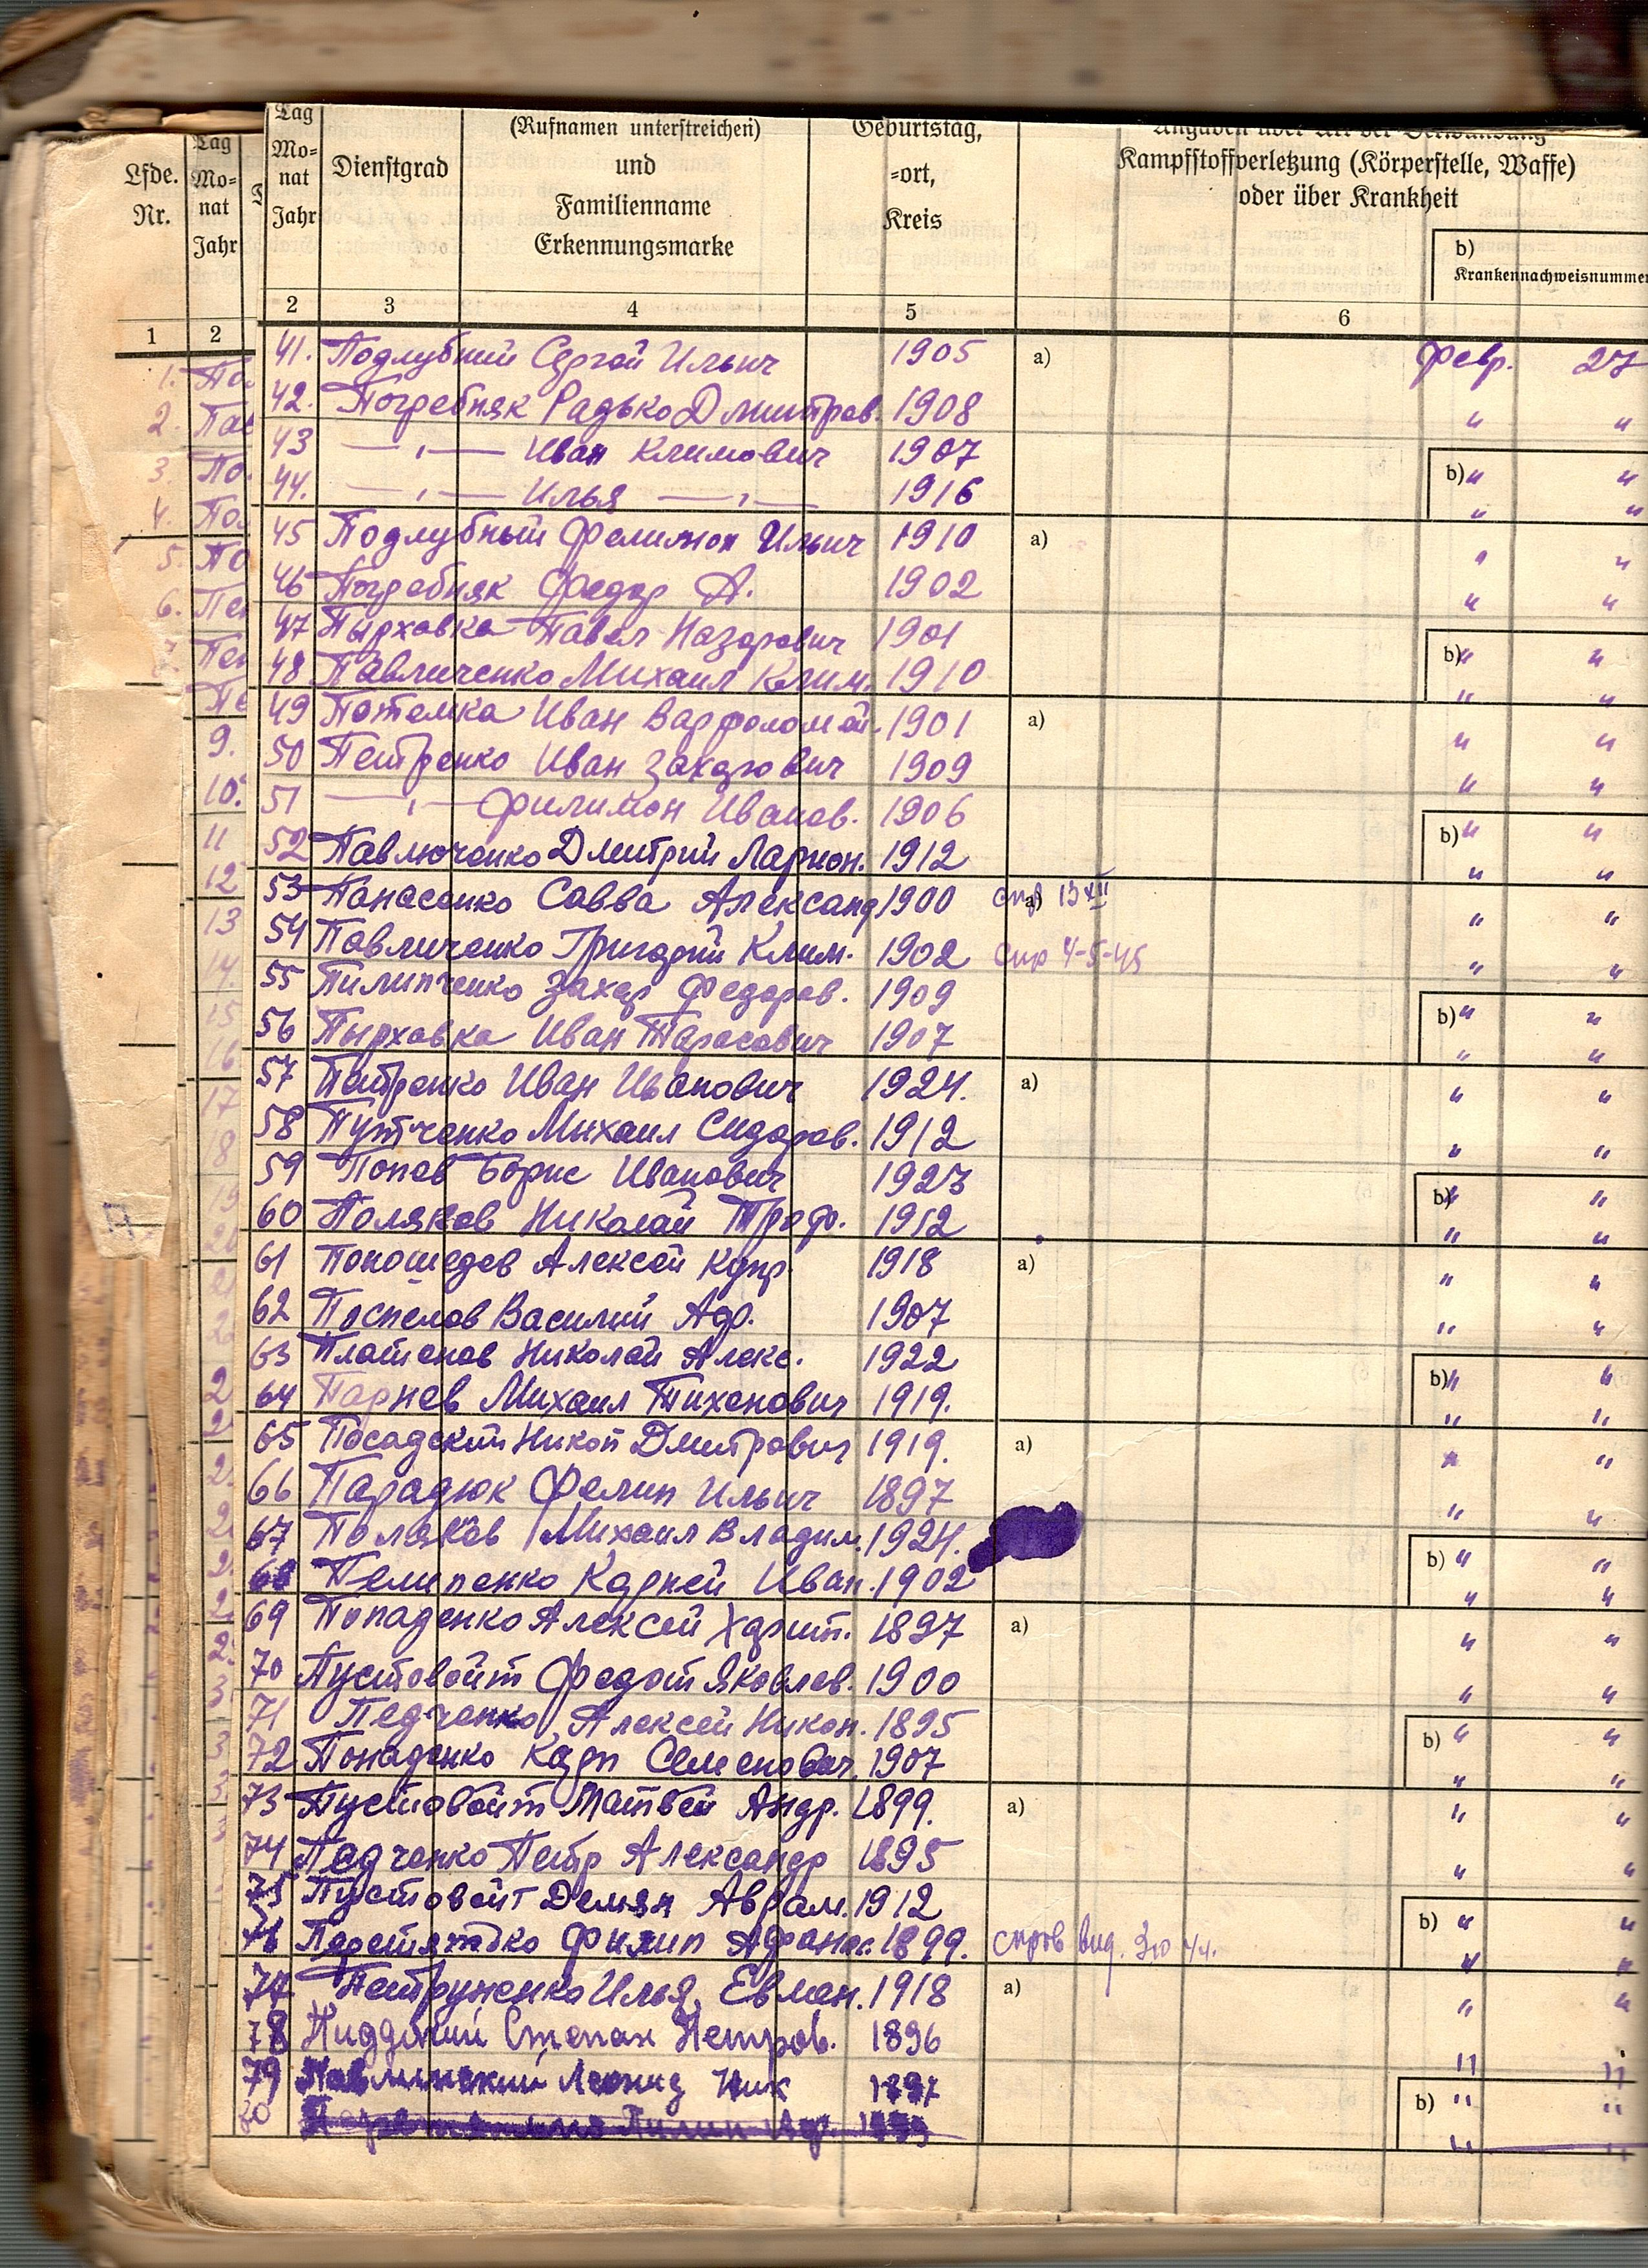 Lfde. Nr.
Tag Mo- nat Jahr
Tag Mo- nat Jahr
Dienstgrad
(Rufnamen unterstreichen) und Familienname Erkennungsmarke
Geburtstag, -ort, Kreis
Kampfstoffverletzung (Körperstelle, Waffe) oder über Krankheit
b) Krankennachweisnummer
1 2 2 3 4 5 6
41. Подлубний Сергей Ильич 1905 a) февр. 27
42. Погребняк Радько Дмитров. 1908 " "
43 —,— Иван Климович 1907 b) " "
44. —,— Илья —,— 1916 " "
45 Подлубный Фелимон Ильич 1910 a) " "
46 Погребняк Федор А. 1902 " "
47 Пырховка Павел Назарович 1901 b) " "
48 Павличенко Михаил Клим. 1910 " "
49 Потемка Иван Варфоломей. 1901 a) " "
50 Петренко Иван Захарович 1909 " "
51 —,— Филимон Иванов. 1906 b) " "
52 Павлюченко Дмитрий Ларион. 1912 " "
53 Панасенко Савва Александ 1900 a) " "
54 Павличенко Григорий Клим. 1902 спр 4-5-45 " "
55 Пилипченко Захар Федоров. 1909 b) " "
56 Пырховка Иван Тарасович 1907 " "
57 Петренко Иван Иванович 1924. a) " "
58 Путченко Михаил Сидоров. 1912 " "
59 Попов Борис Иванович 1923 b) " "
60 Поляков Николай Троф. 1912 " "
61 Алексей Купр. 1918 a) " "
62 Поспелов Василий Адр. 1907 " "
63 Платонов Николай Алекс. 1922 b) " "
64 Парнев Михаил Тихонович 1919. " "
65 Посадский Никон Дмитрович 1919. a) " "
66 Парадюк Фелип Ильич 1897 " "
67 Поляков Михаил Владим. 1924. b) " "
68 Пелипенко Карней Иван. 1902 " "
69 Попаденко Алексей Харит. 1897 a) " "
70 Пустовойт Федот Яковлев. 1900 " "
71 Педченко Алексей Никон. 1895 b) " "
72 Попаденко Карп Семенович. 1907 " "
73 Пустовойт Матвей Андр. 1899. a) " "
74 Педченко Петр Александр 1895 " "
75 Пустовойт Демян Аврам. 1912 b) " "
76 Филип Афанас. 1899. " "
77 Петруненко Илья Евмен. 1918 a) " "
78 Степан Петров. 1896 " "
79 Леонид Ник 1897 b) " "
80 " "